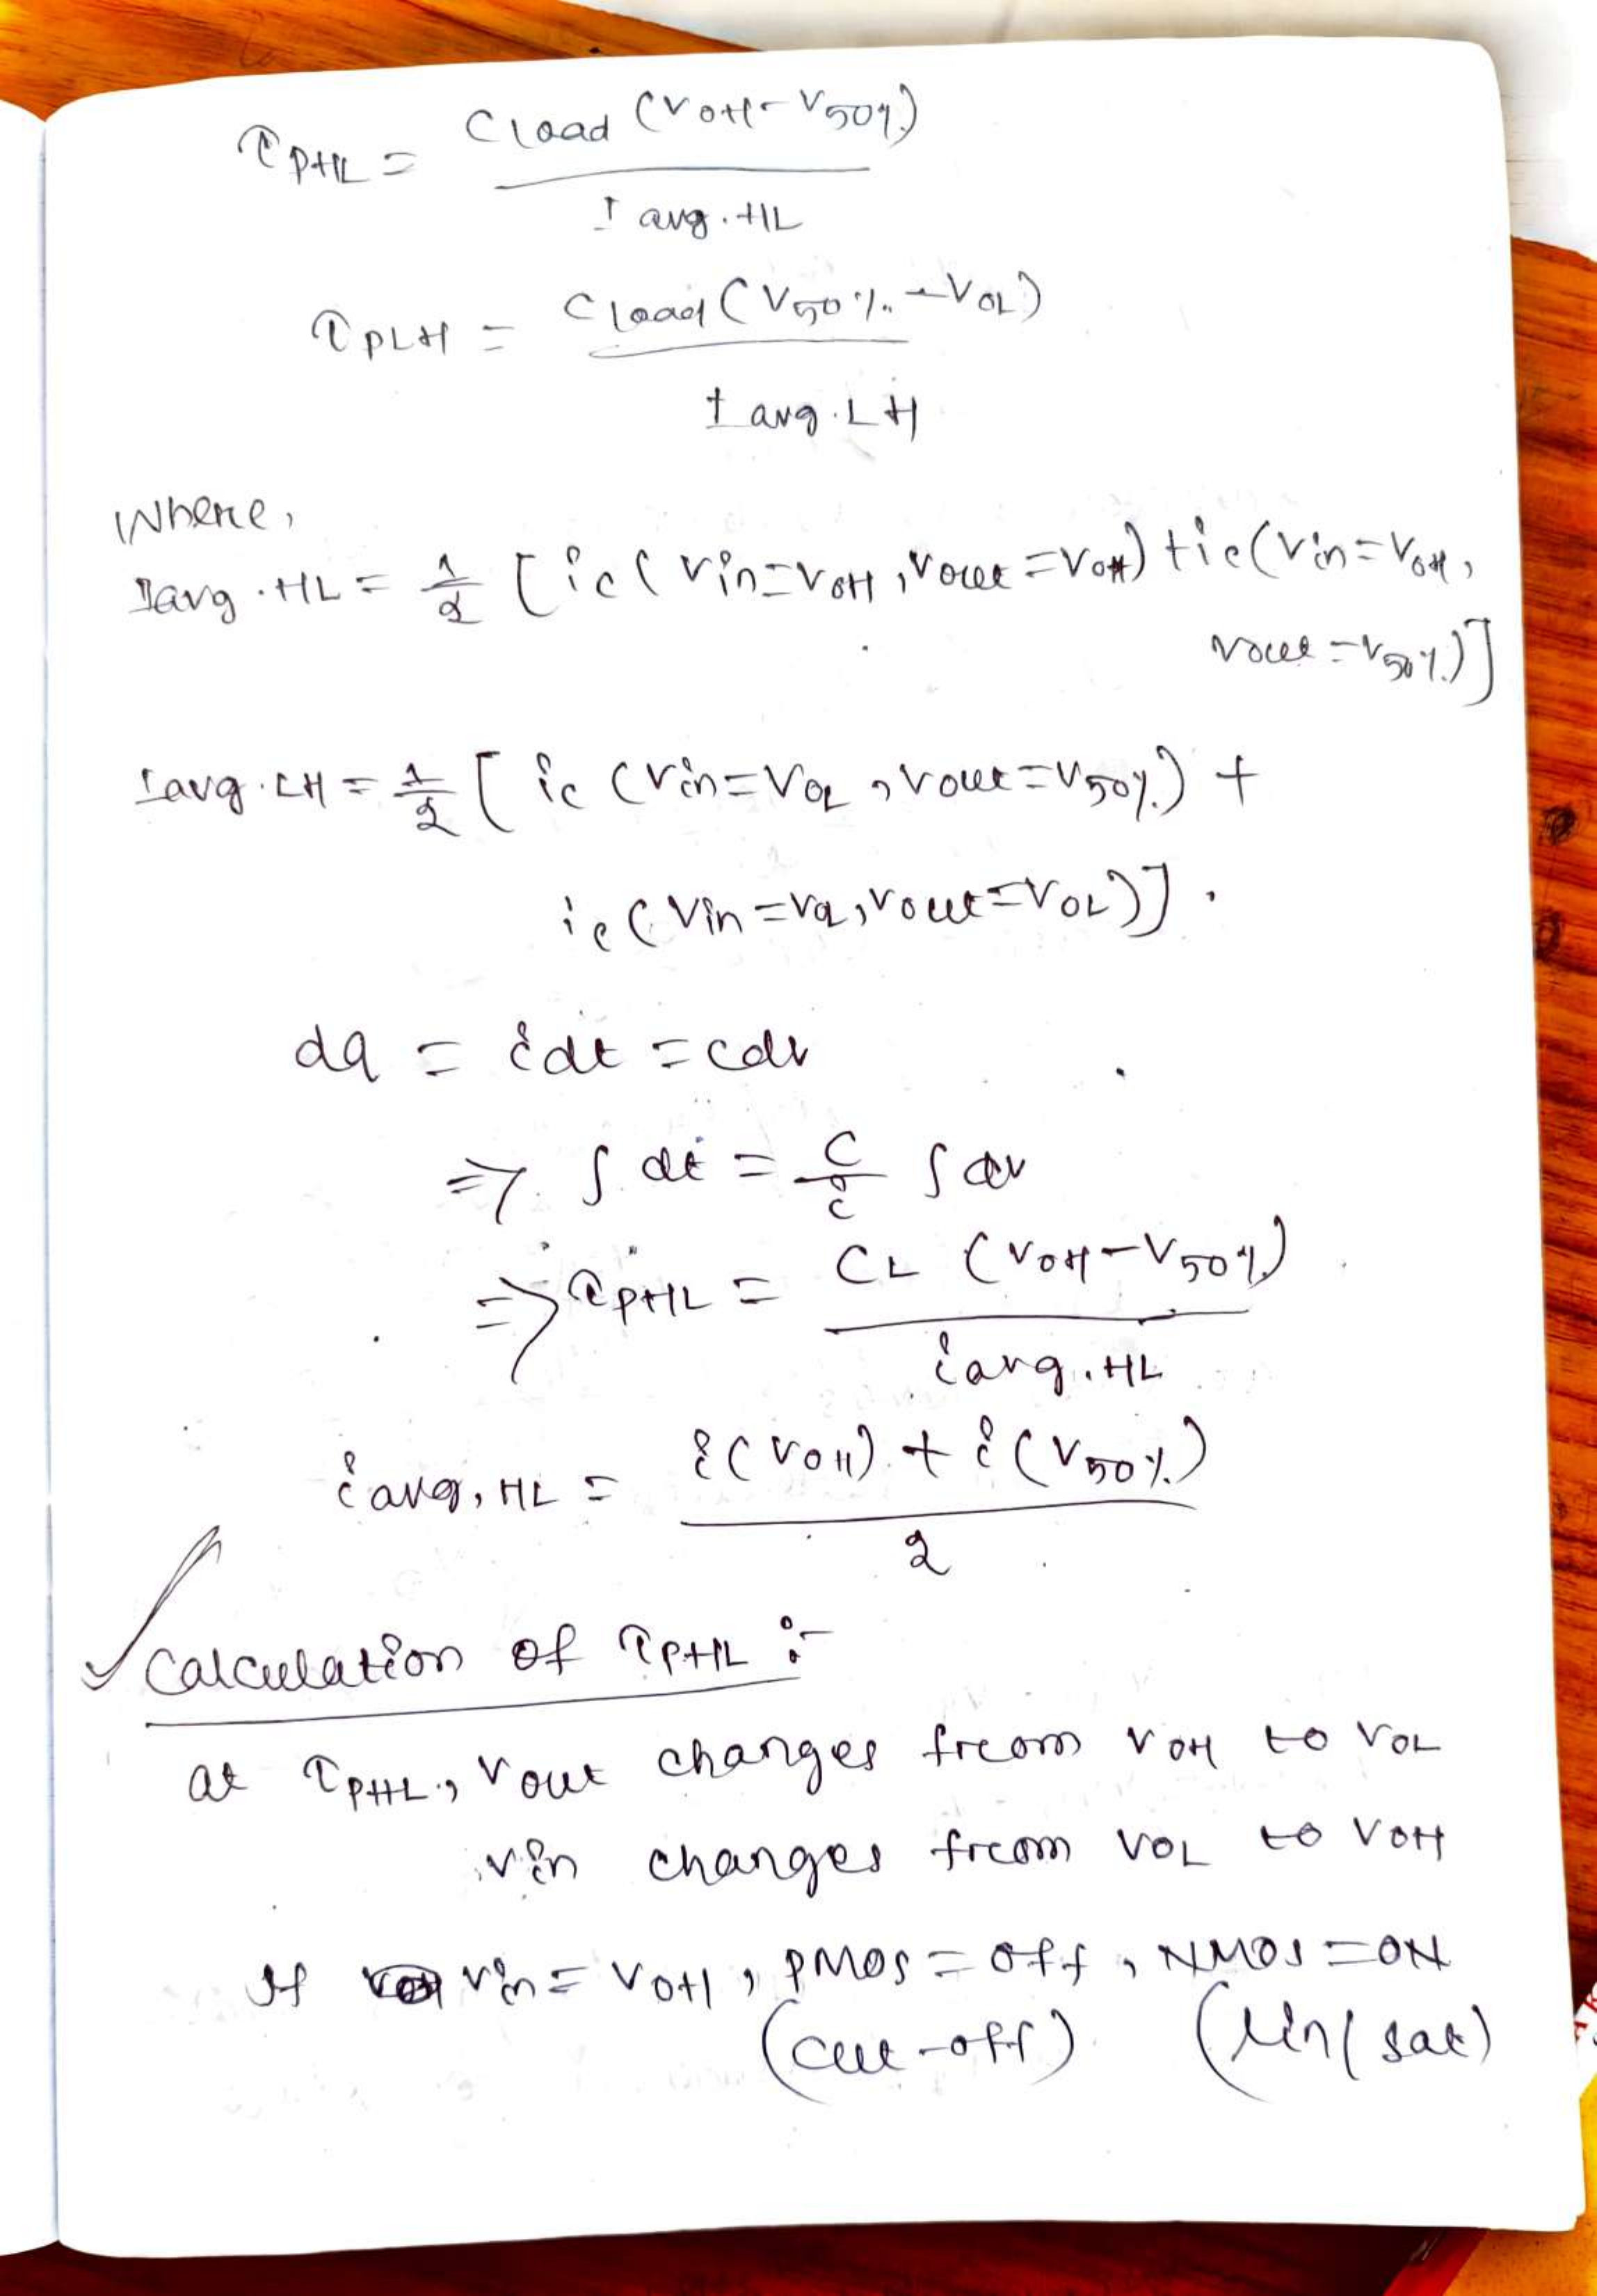 τPHL = Cload (VOH - V50%) / Iavg.HL
τPLH = Cload (V50% - VOL) / Iavg.LH
Where,
Iavg.HL = 1/2 [ic (Vin=VOH, Vout=VOH) + ic (Vin=VOH,
Vout=V50%)]
Iavg.LH = 1/2 [ic (Vin=VOL, Vout=V50%) +
ic (Vin=VOL, Vout=VOL)].
dq = idt = cdv
=> ∫dt = C/i ∫dv
=> τPHL = CL (VOH - V50%) / iavg.HL
iavg, HL = i(VOH) + i(V50%) / 2
✓ Calculation of τPHL :-
at τPHL, Vout changes from VOH to VOL
Vin changes from VOL to VOH
If Vin = VOH, PMOS = Off, NMOS = ON
(cut-off) (Lin/sat)